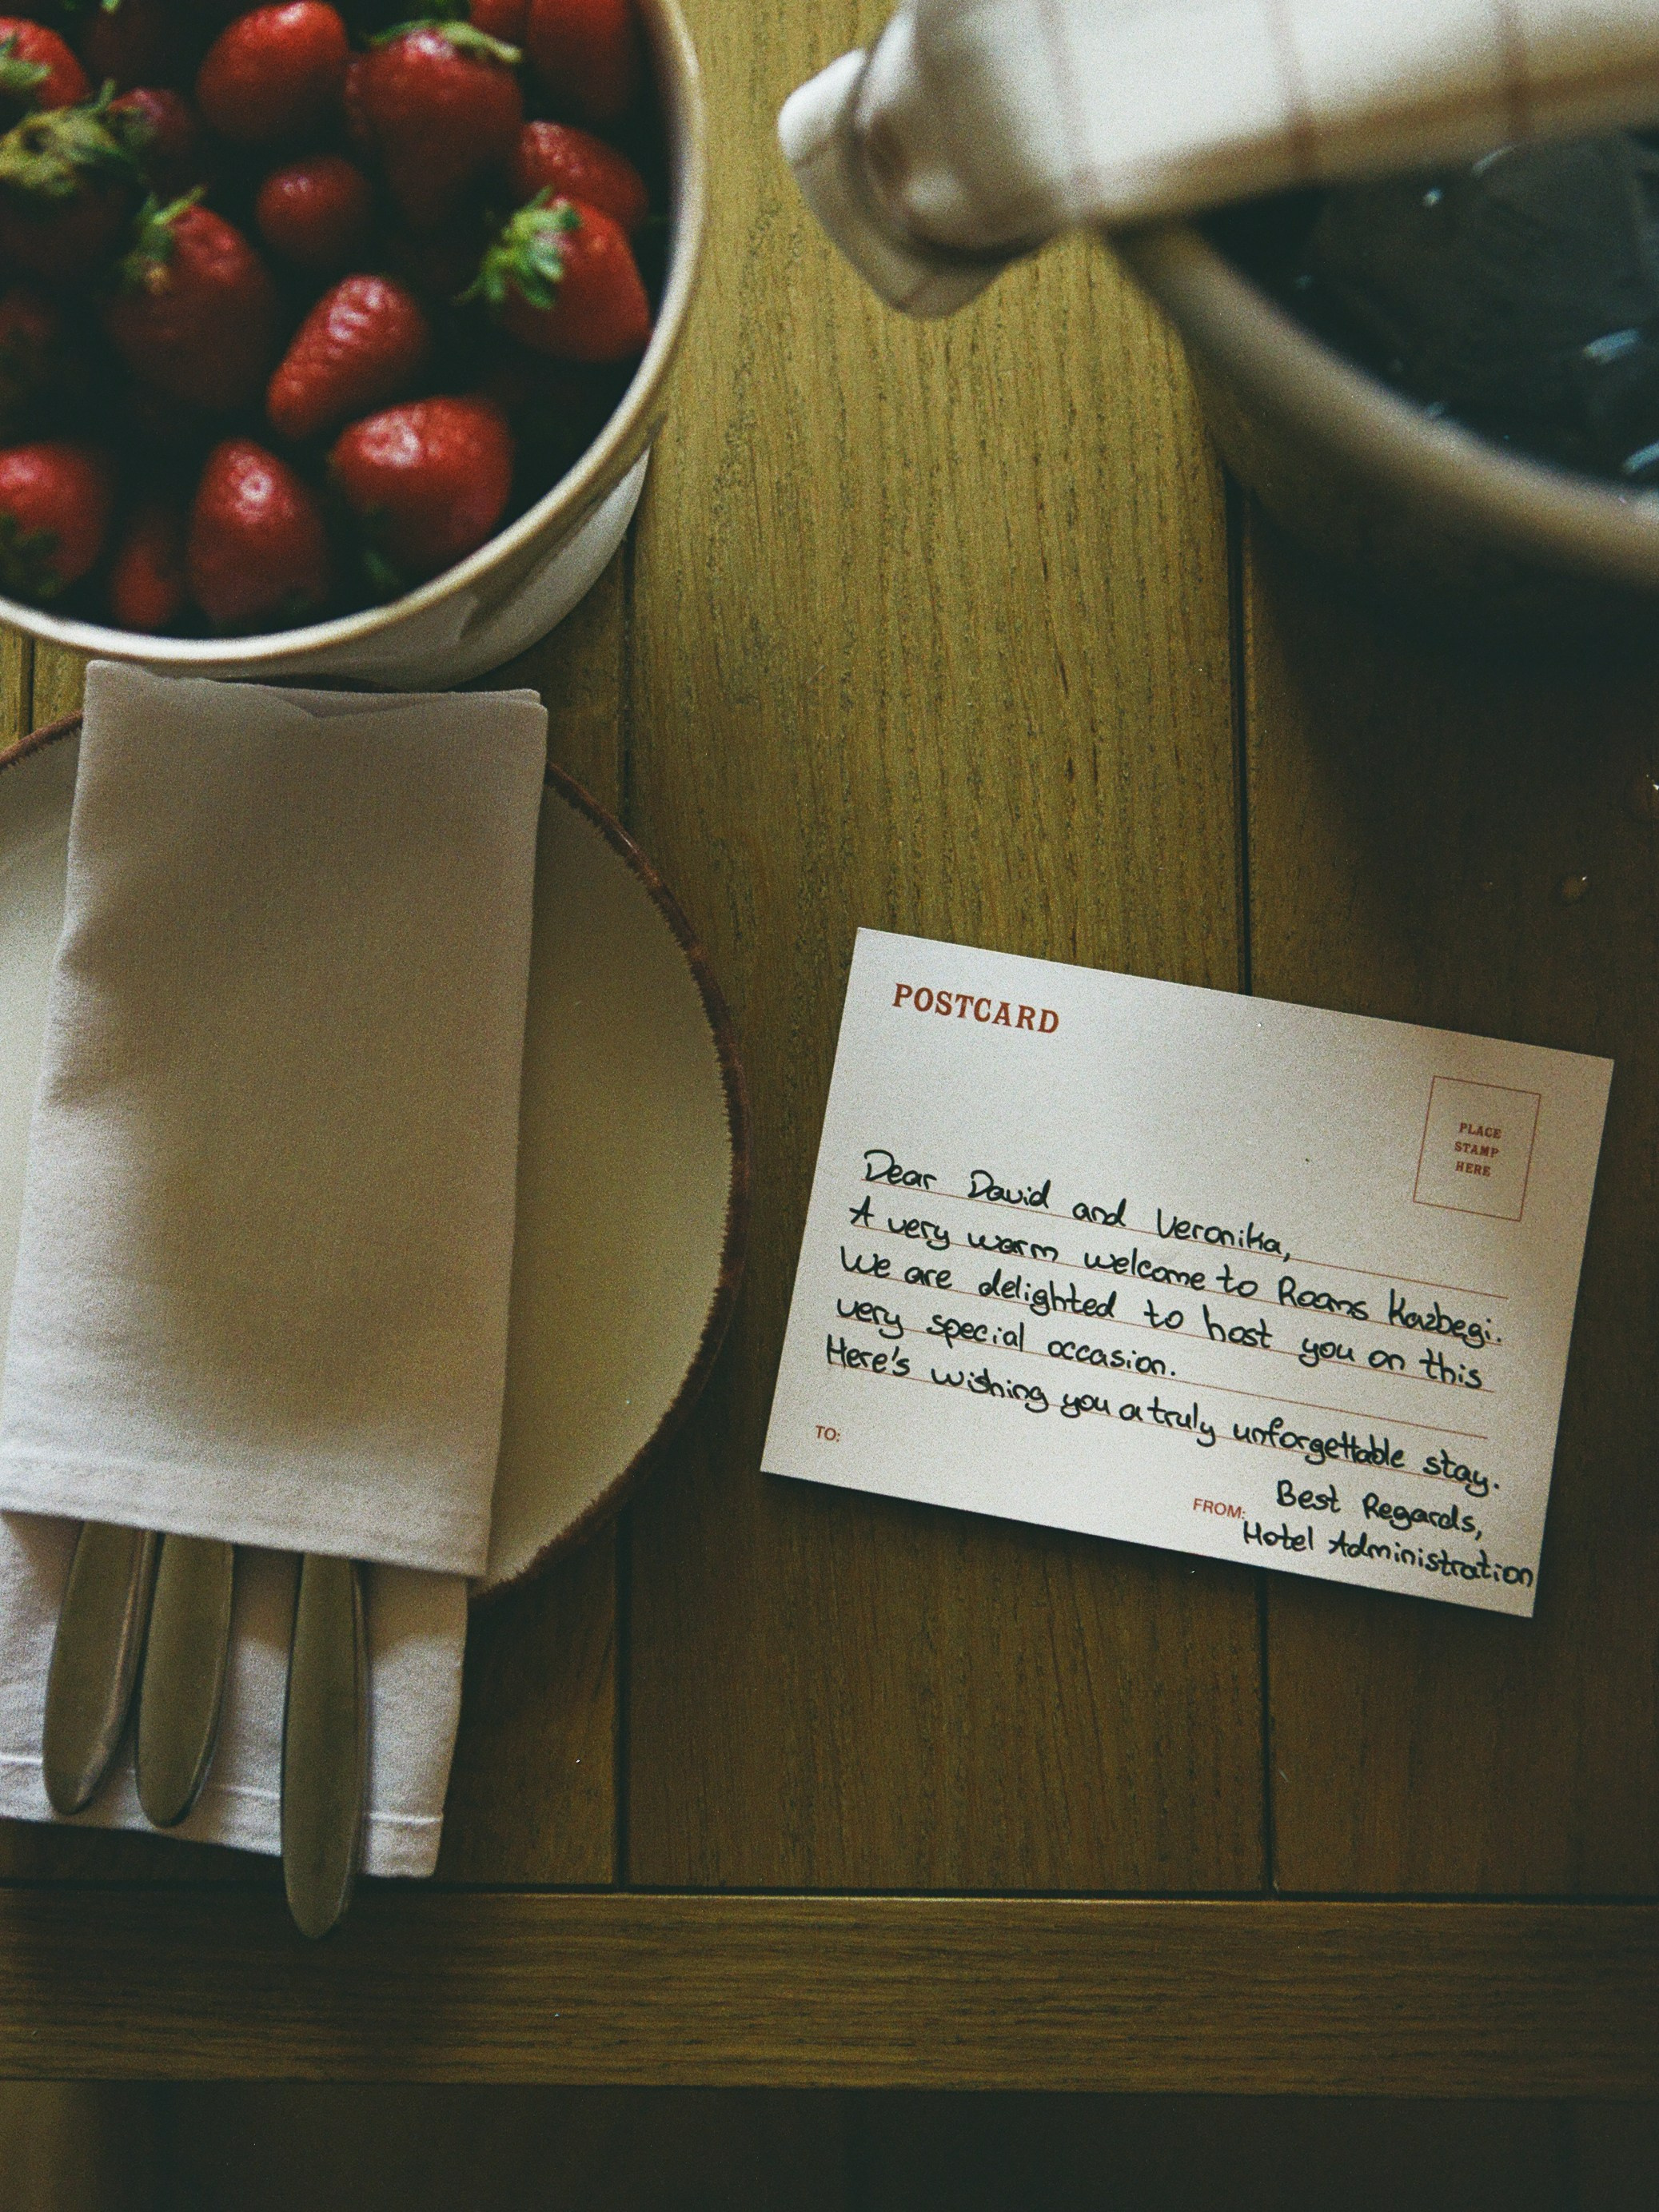 POSTCARD
PLACE
STAMP
HERE
Dear David and Veronika,
A very warm welcome to Rooms Kazbegi.
We are delighted to host you on this
very special occasion.
Here's wishing you a truly unforgettable stay.
TO:
Best Regards,
FROM:
Hotel Administration